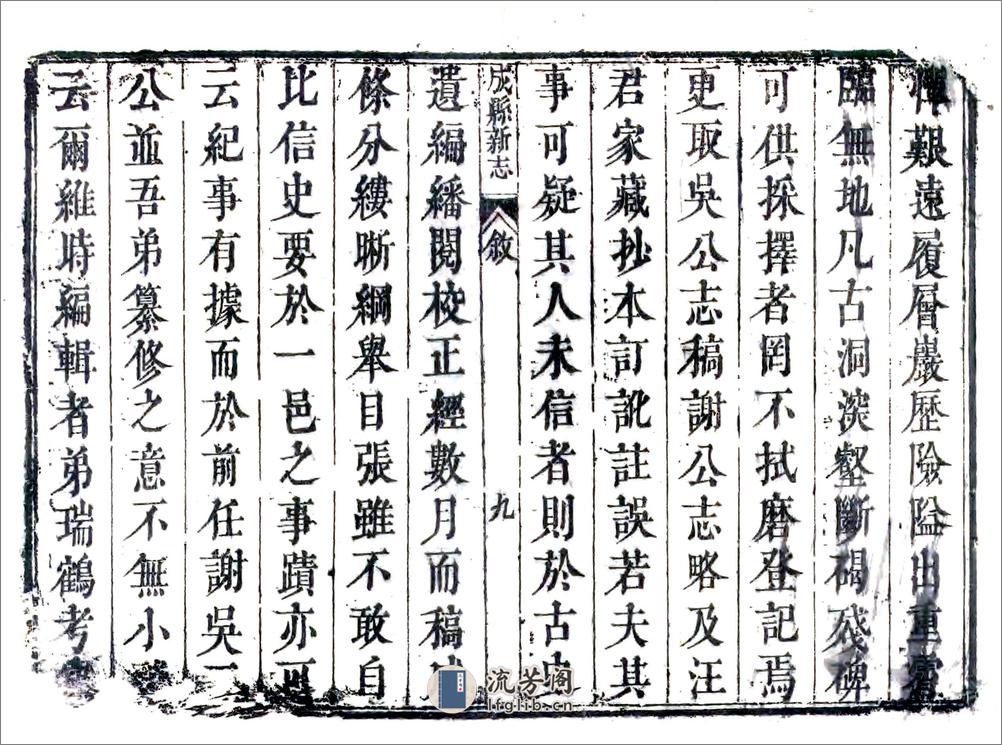 憚艱遠履層巖歷險隘出重霄
臨無地凡古洞深壑斷碣殘碑
可供採擇者罔不拭磨登記焉
更取吳公志稿謝公志略及汪
君家藏抄本訂訛註誤若夫其
事可疑其人未信者則於古史
成縣新志 敘 九
遺編繙閱校正經數月而稿
條分縷晰綱舉目張雖不敢自
比信史要於一邑之事蹟亦可
云紀事有據而於前任謝吳
公並吾弟纂修之意不無小
云爾維時編輯者弟瑞鶴考
流芳阁
lfglib.cn